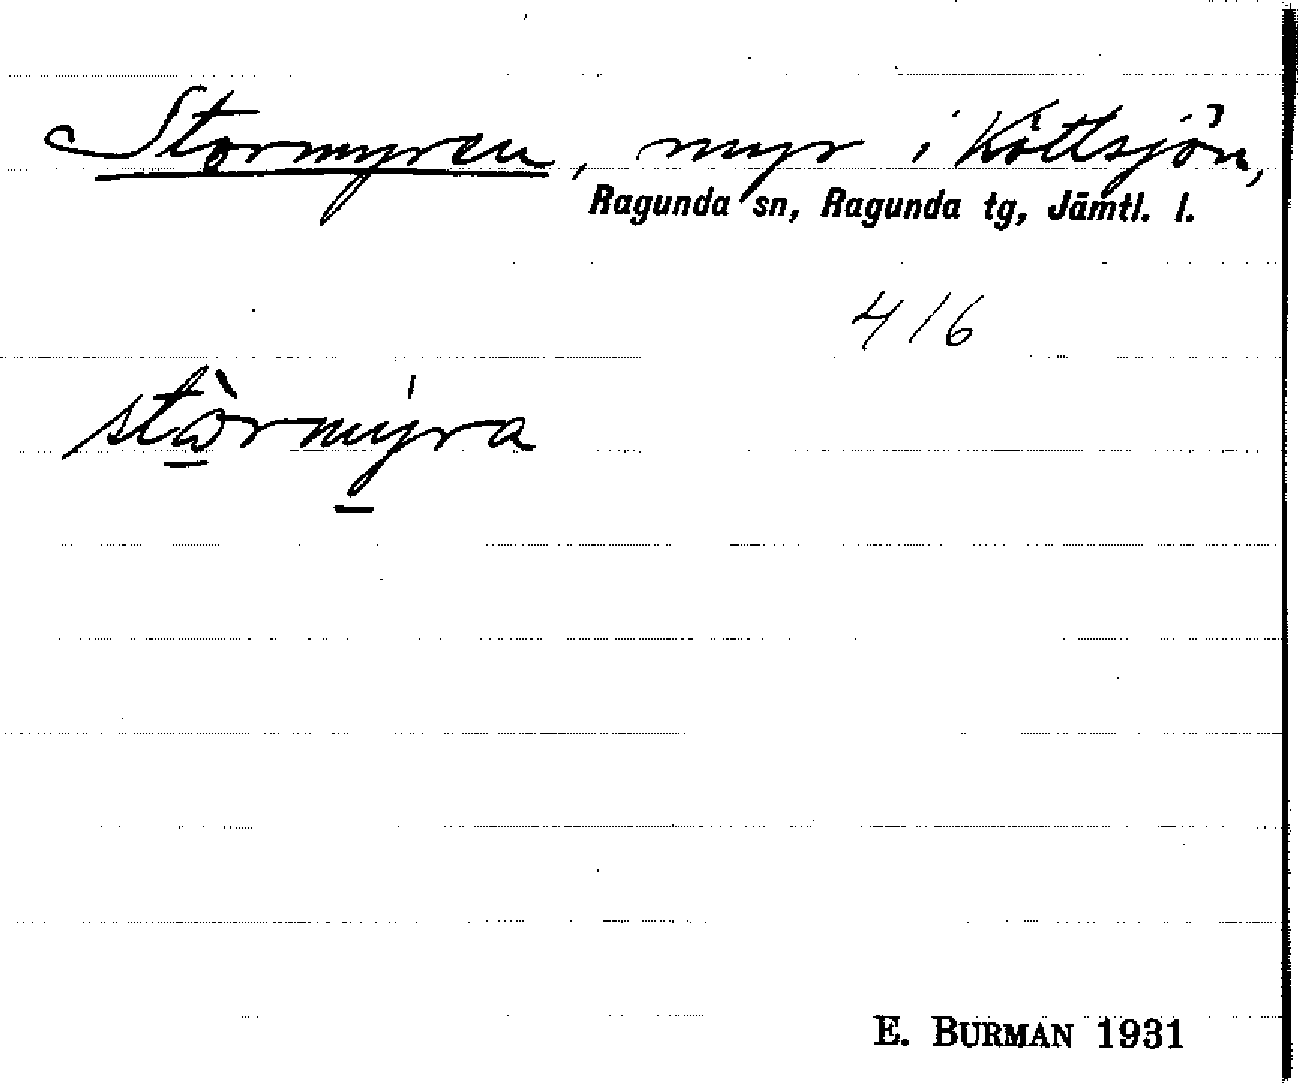 Stormyren, myr i Köttsjön,
Ragunda sn, Ragunda tg, Jämtl. l.
416
stòrmýra
E. BURMAN 1931